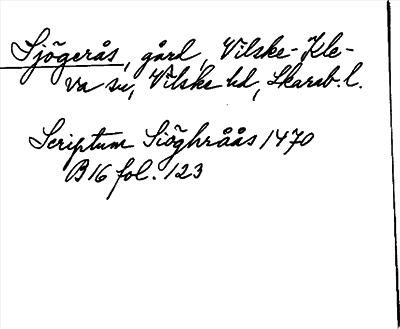 Sjögerås, gård, Vilske-Kle-
va sn, Vilske hd, Skarab. l.
Scriptum Siöghråås 1470
B16 fol. 123